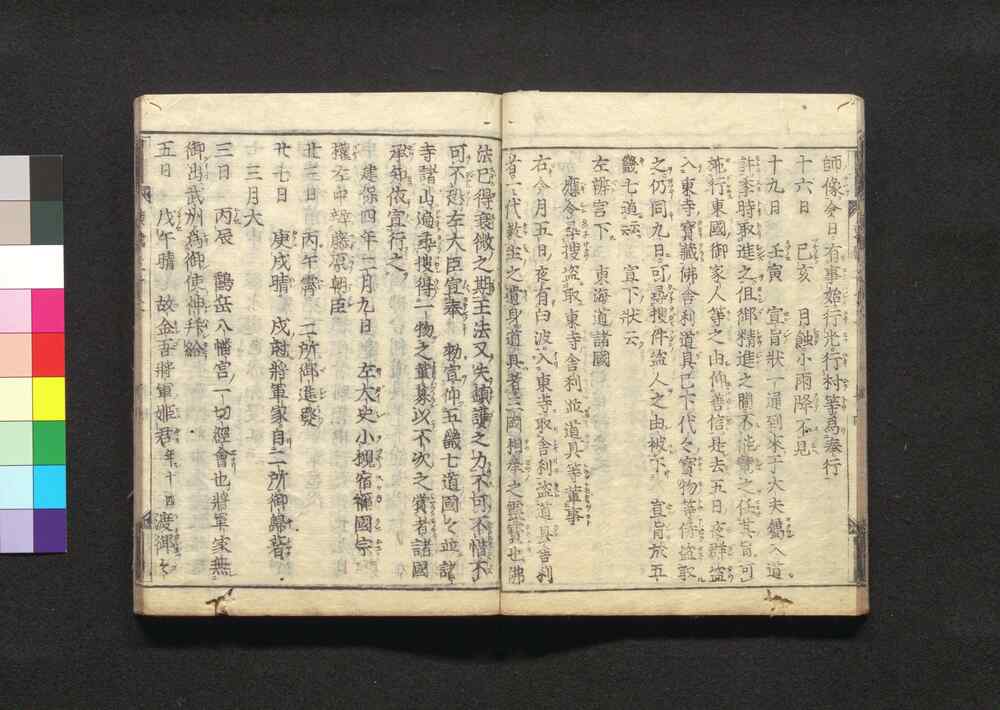 師像今日有事始行光行村等為奉行
十六日　己亥　月蝕小雨降不見
十九日　壬寅　宣旨状一通到来于大夫入道
許李時取進之但御精進之間不能覧之任其旨可
施行東國御家人等之由仰善信是去五日夜群盗
入東寺寶蔵佛舎利道具已下代々寳物等偸盗取
之仍同九日可尋捜件盗人之由被下　宣旨於五
畿七道云云　宣下状云
左辨官下　東海道諸國
應令尋捜盗取東寺舎利並道具等輩事
右今月五日夜有白波入東寺取舎利盗道具舎利
者一代教主之遺身道具者三國相承之霊寳也佛
法已得衰微之期王法又失鎮護之力不可不惜不
可不恐左大臣宣奉　勅宣仰五畿七道國々並諸
寺諸山遍尋捜得二物之輩募以不次之賞者諸國
承知依宣行之
建保四年二月九日　左大史小槻宿禰國宗
權左中辨藤原朝臣
廿三日　丙午霽　二所御進發
廿七日　庚戌晴　戌尅將軍家自二所御歸着
三月大
三日　丙辰　鶴岳八幡宮一切經會也將軍家無
御出武州為御使神拜給
五日　戊午晴　故金吾將軍姫君年十四渡御